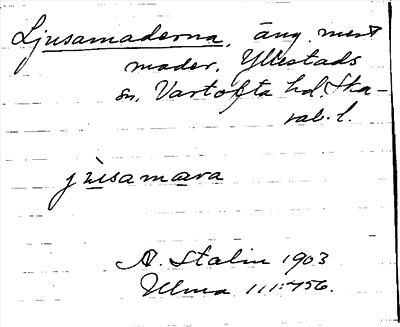 Ljusamaderna, äng mest
mader, Yllestads
sn, Vartofta hd. Ska-
rab. l.
jusamara
A. Stalin 1903
Ulma 111:456.